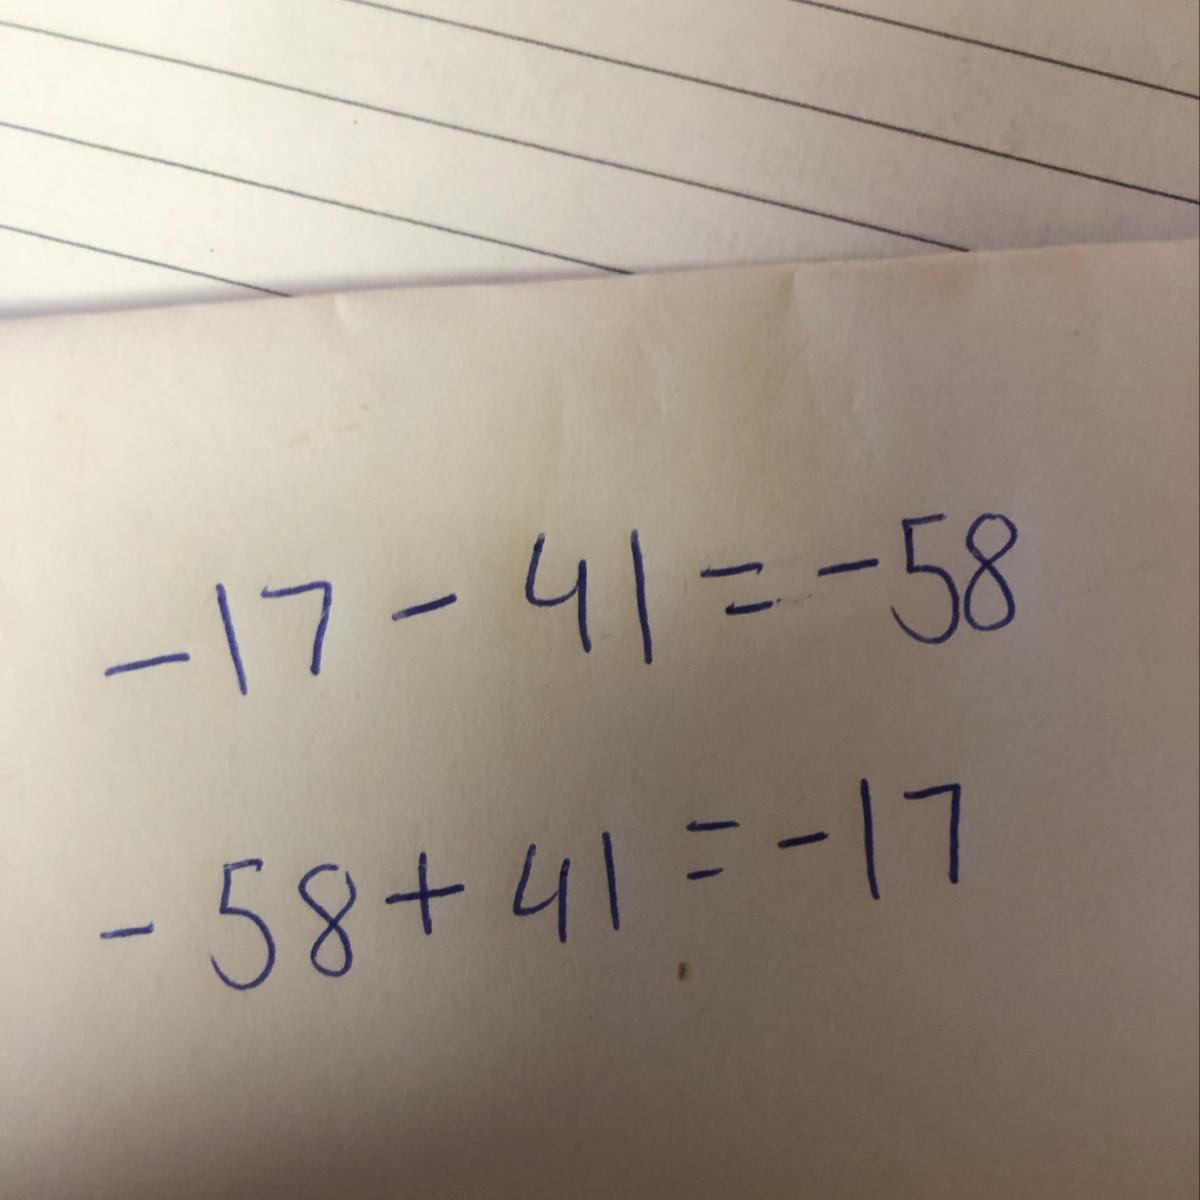 -17 - 41 = -58
-58 + 41 = -17